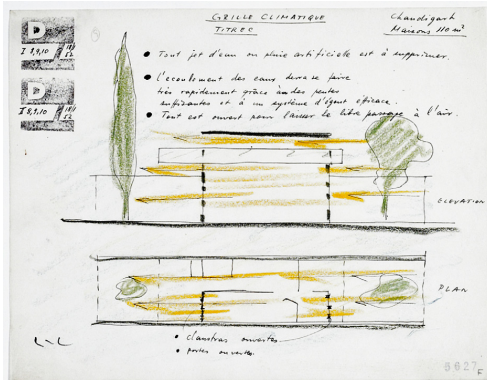 GRILLE CLIMATIQUE
TITREC
Chandigarh
Maisons 110 m²
D
I 8,9,10
D
I 8,9,10
• Tout jet d'eau ou pluie artificielle est à supprimer.
• L'écoulement des eaux devra se faire
très rapidement grâce à des pentes
suffisantes et à un système d'égout efficace.
• Tout est ouvert pour laisser le libre passage à l'air.
ELEVATION
PLAN
• claustras ouvertes
• portes ouvertes.
5627
F